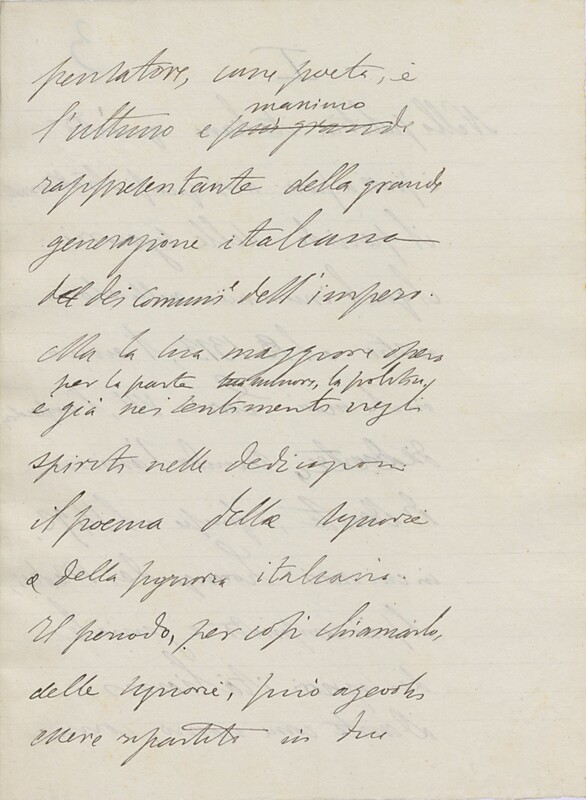 pensatore, come poeta, è
massimo
l'ultimo e più grande
rappresentante della grande
generazione italiana
del dei comuni e dell'impero.
Ma la sua maggiore opera
per la parte minore, la politica,
è già nei sentimenti negli
spiriti nelle dedicazioni
il poema delle signorie
e della signoria italiana.
Il periodo, per così chiamarlo,
delle signorie, può agevolm
essere ripartito in due